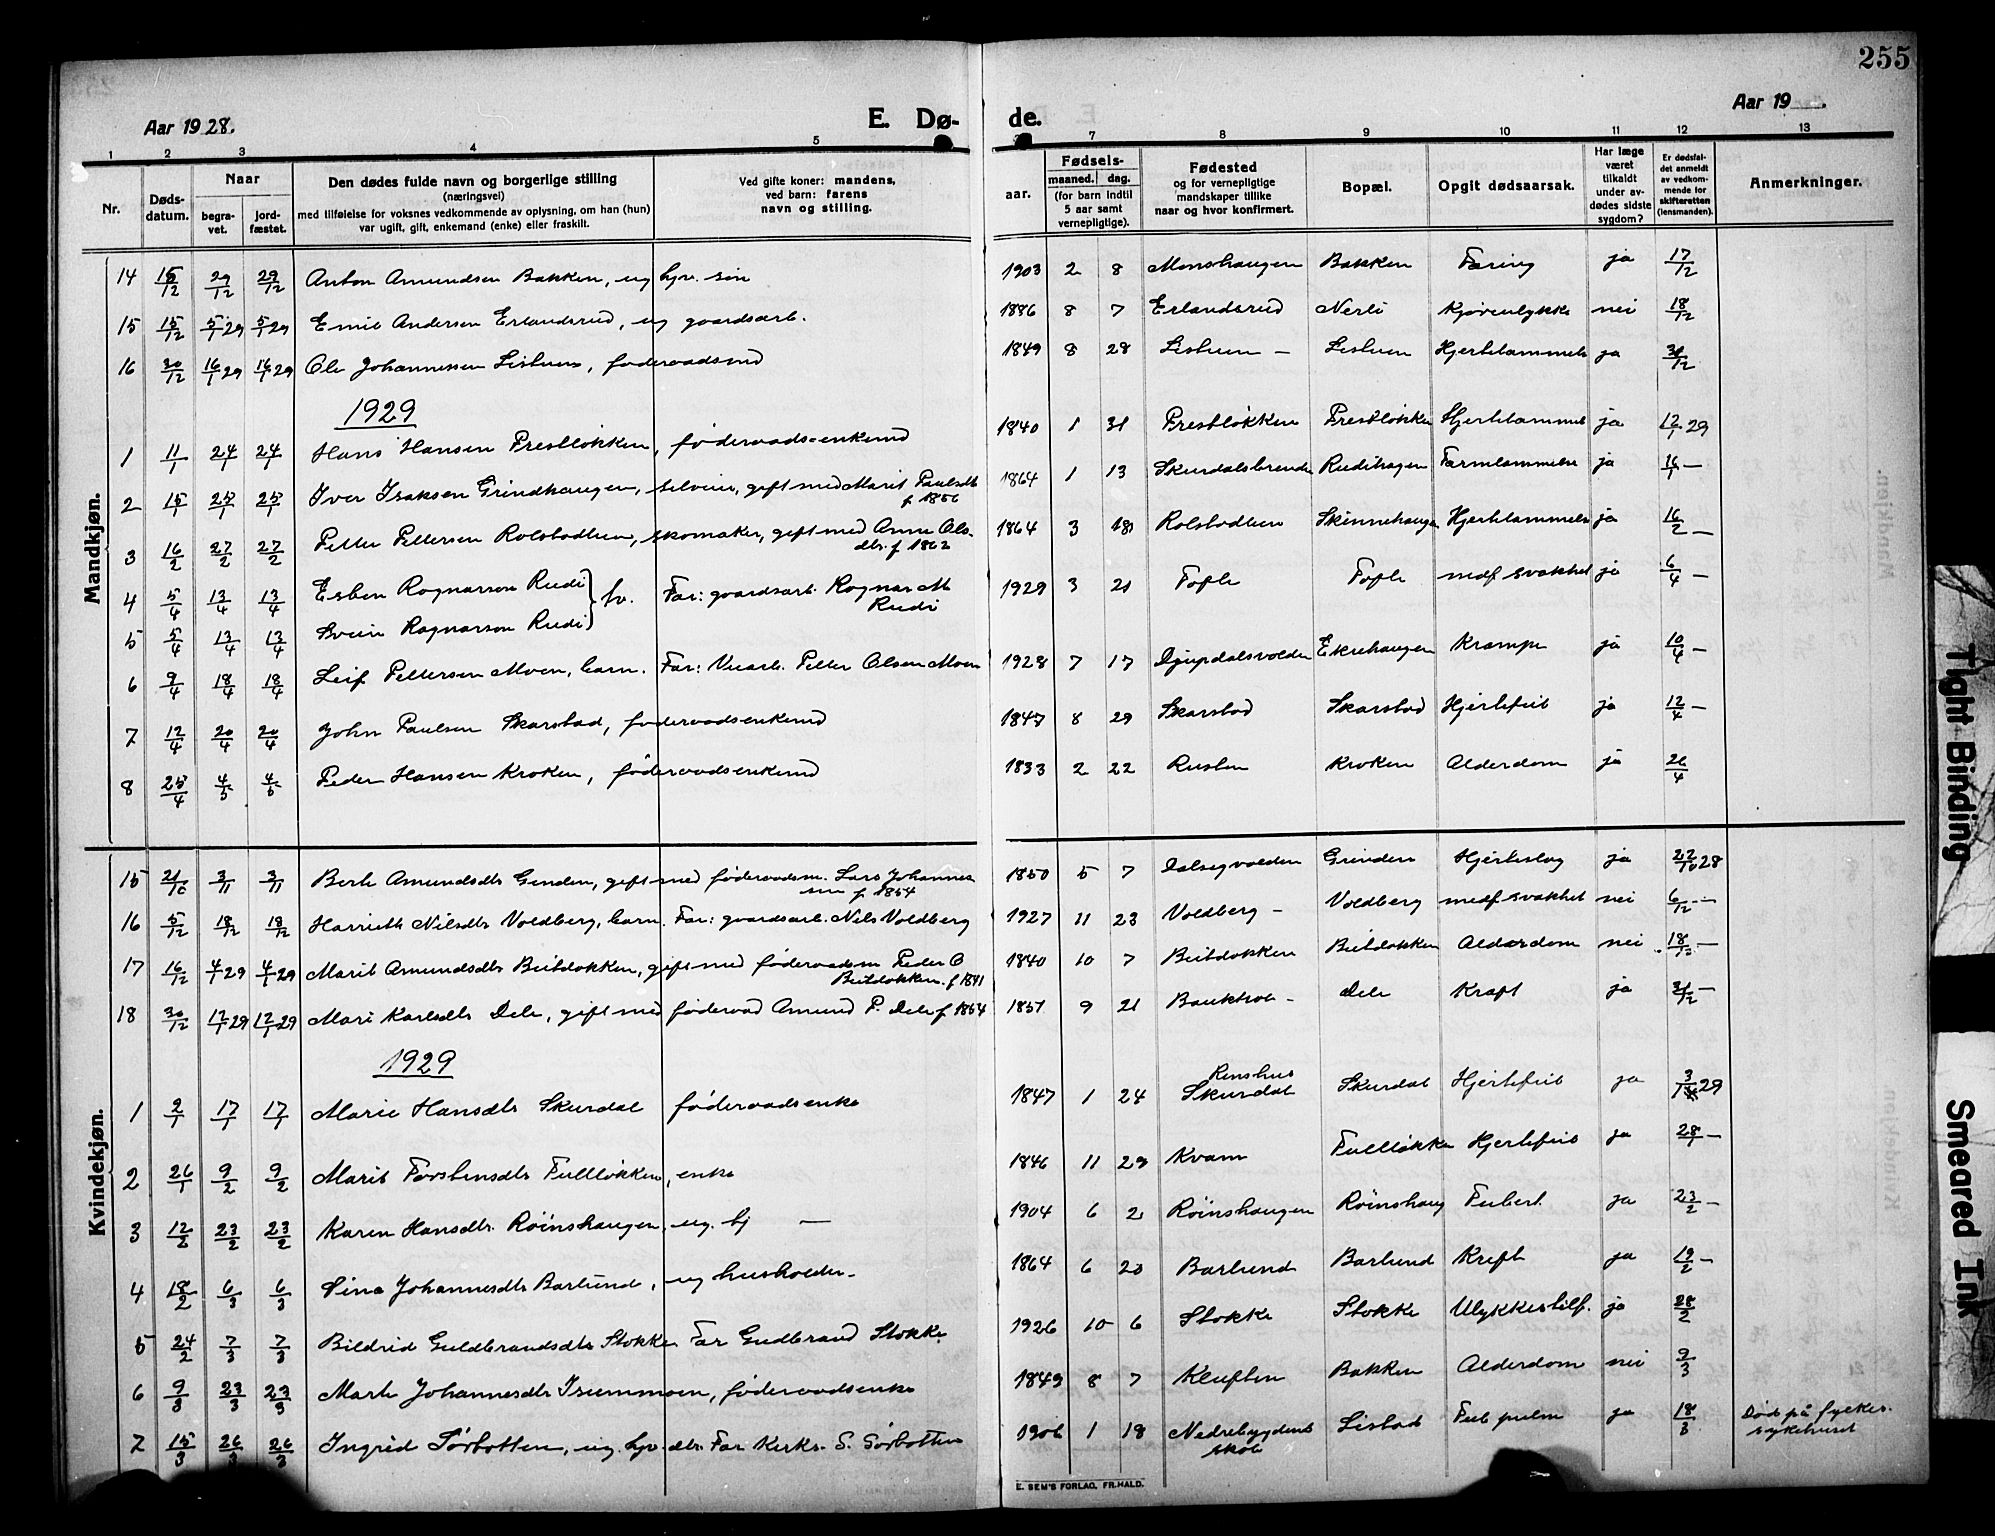 255
Aar 1928.
E. Dø-
de.
Aar 19
1 2 3 4 5 7 8 9 10 11 12 13
Nr.
Døds-
datum.
Naar
begra-
vet.
jord-
fæstet.
Den dødes fulde navn og borgerlige stilling
(næringsvei)
med tilføielse for voksnes vedkommende av oplysning, om han (hun)
var ugift, gift, enkemand (enke) eller fraskilt.
Ved gifte koner: mandens,
ved barn: farens
navn og stilling.
aar.
Fødsels-
maaned. dag.
(for barn indtil
5 aar samt
vernepligtige).
Fødested
og for vernepligtige
mandskaper tillike
naar og hvor konfirmert.
Bopæl.
Opgit dødsaarsak.
Har læge
været
tilkaldt
under av-
dødes sidste
sygdom?
Er dødsfal-
det anmeldt
av vedkom-
mende for
skifteretten
(lensmanden).
Anmerkninger.
Mandkjøn.
14 15/12 29/12 29/12 Anton Amundsen Bakken, ug hjv. søn 1903 2 8 Monshaugen Bakken Tæring ja 17/12
15 15/12 5/1 29 5/1 29 Emil Andersen Erlandsrud, ug gaardsarb. 1886 8 7 Erlandsrud Nerli Kjøreulykke nei 18/12
16 30/12 16/1 29 16/1 29 Ole Johannessen Listuen, føderaadsmd 1849 8 28 Listuen – Listuen Hjertelammels ja 31/12
1929
1 11/1 24/1 24/1 Hans Hansen Prestløkken, føderaads-enkemd 1840 1 31 Prestløkken Prestløkken Hjertelammels ja 12/1 29
2 15/1 25/1 25/1 Iver Isaksen Grindhaugen, selveier, gift med Marit Paulsdtr
f 1856 1864 1 13 Skurdalsbrenden Rudihagen Tarmlammelse ja 16/1 –
3 16/2 27/2 27/2 Petter Pettersen Rolstadteen, skomaker, gift med Anne Ols-
dtr. f 1862 1864 3 18 Rolstadteen Skinnehaugen Hjertelammels ja 16/2 –
4 5/4 13/4 13/4 Esben Ragnarson Rudi } tv. Far: gaardsarb. Ragnar M
Rudi 1929 3 21 Tofte Tofte medf svakhet ja 6/4 –
5 5/4 13/4 13/4 Svein Ragnarson Rudi
6 9/4 18/4 18/4 Leif Pettersen Moen, barn. Far: Veiarb. Petter Olsen Moen 1928 7 17 Djupdalsvolden Ekrehaugen Krampe ja 10/4 –
7 12/4 20/4 20/4 John Paulsen Skarstad, føderaadsenkemd 1847 8 29 Skarstad Skarstad Hjertefeil ja 12/4 –
8 25/4 4/5 4/5 Peder Hansen Kroken, føderaadsenkemd 1833 2 22 Rusten Kroken Alderdom ja 26/4
Kvindekjøn.
15 21/10 3/11 3/11 Berte Amundsdtr Grinden, gift med føderaadsm. Lars Johannes
sen f 1854 1850 5 7 Dalsegvolden Grinden Hjerteslag ja 22/10 28
16 5/12 18/12 18/12 Harrieth Nilsdtr Voldberg, barn. Far: gaardsarb. Nils Voldberg 1927 11 23 Voldberg – Voldberg medf svakhet nei 6/12 –
17 16/12 4/1 29 4/1 29 Marit Amundsdtr Beitdokken, gift med føderaadsm Peder O
Beitdokken. f 1841 1840 10 7 Beitdokken Beitdokken Alderdom nei 18/12 –
18 30/12 12/1 29 12/1 29 Mari Karlsdtr Dele, gift med føderaad Amund P. Dele f 1854 1857 9 21 – Dele Kræft ja 31/12 –
1929
1 2/1 17/1 17/1 Marie Hansdtr Skurdal føderaadsenke 1847 1 24 Renshus
Skurdal Skurdal Hjertefeil ja 3/1 29
2 26/1 9/2 9/2 Marit Torstensdtr Tulløkken, enke 1846 11 29 Kvam Tulløkken Hjertefeil ja 28/1 –
3 12/2 23/2 23/2 Karen Hansdtr. Røinshaugen, ug. hj – 1904 6 2 Røinshaugen Røinshaug Tuberk. ja 23/2 –
4 18/2 6/3 6/3 Sina Johannesdtr Barlund, ug husholder- 1864 6 20 Barlund Barlund Kreft ja 19/2 –
5 24/2 7/3 7/3 Bildrid Guldbrandsdtr Stokke Far Gudbrand Stokke 1926 10 6 Stokke Stokke Ulykkestilf. ja 28/2
6 9/3 23/3 23/3 Marte Johannesdtr Isummoen, føderaadsenke 1849 8 7 Kluften Bakken Alderdom nei 9/3
7 15/3 26/3 26/3 Ingrid Sørbotten, ug. hjv dtr. Far Kirks. S. Sørbotten 1906 1 18 Nedrebygdens
skole Listad Tub pulm ja 18/3 Død på fylkes-
sykehuset
E. SEM'S FORLAG, FR.HALD.
Tight Binding
Smeared Ink